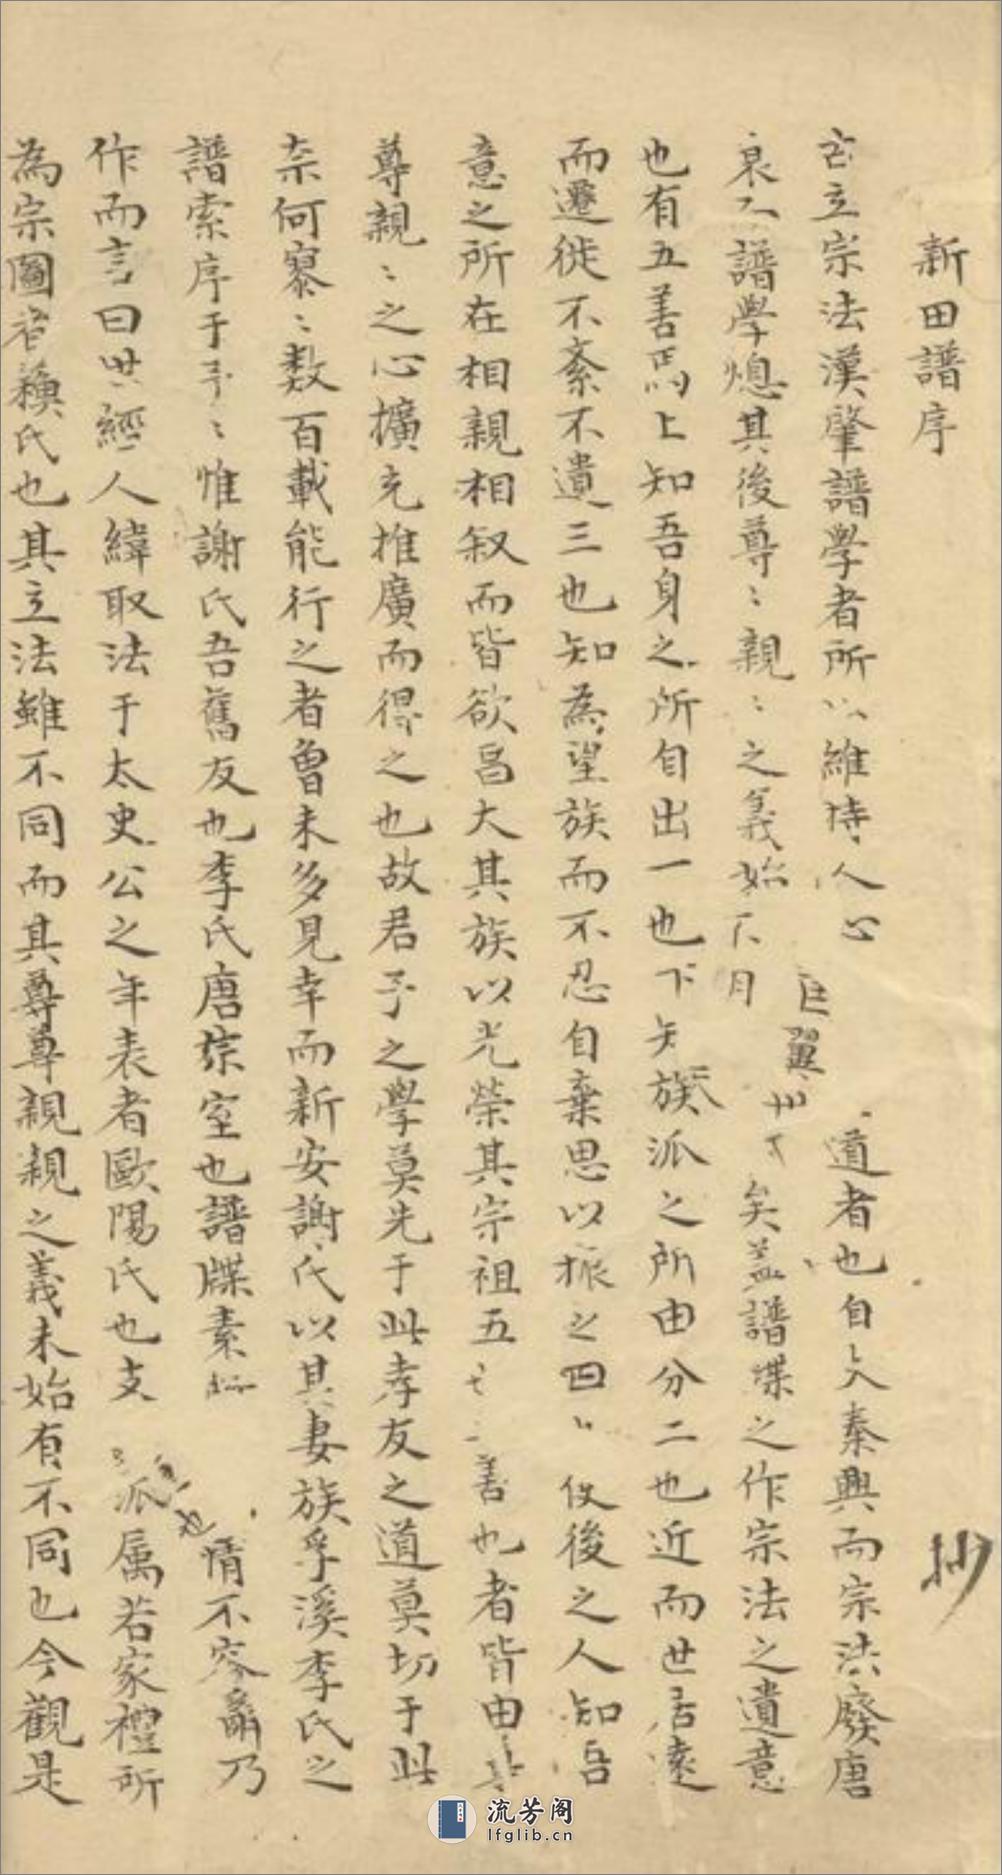 新田譜序 抄
古立宗法漢肇譜學者所以維持人心 道者也自 秦興而宗法廢唐
衰 譜學熄其後尊〻親〻之義始不明 矣蓋譜牒之作宗法之遺意
也有五善焉上知吾身之所自出一也下知族派之所由分二也近而世居遠
而遷徙不紊不遺三也知為望族而不忍自棄思以振之四 使後之人知吾
意之所在相親相叙而皆欲昌大其族以光榮其宗祖五也 善也者皆由其
尊親〻之心擴充推廣而得之也故君子之學莫先于此孝友之道莫切于此
奈何寥〻数百載能行之者曾未多見幸而新安謝氏以其妻族孚溪李氏之
譜索序于予〻惟謝氏吾舊友也李氏唐宗室也譜牒素 情不容辭乃
作而言曰世經人緯取法于太史公之年表者歐陽氏也支 派属若家禮所
為宗圖者蘓氏也其立法雖不同而其尊尊親親之義未始有不同也今觀是
流芳阁
lfglib.cn